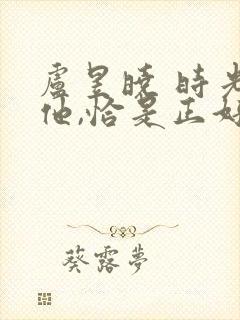 盧昱曉 時光
他,恰是正好
葵露夢